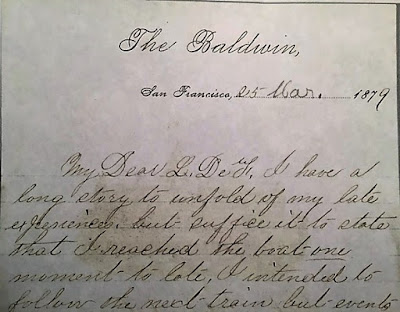 The Baldwin,
San Francisco, 25 Mar. 1879
My Dear L. DeF. I have a
long story to unfold of my late
experience. but suffice it to state
that I reached the boat one
moment to late, I intended to
follow the next train but events